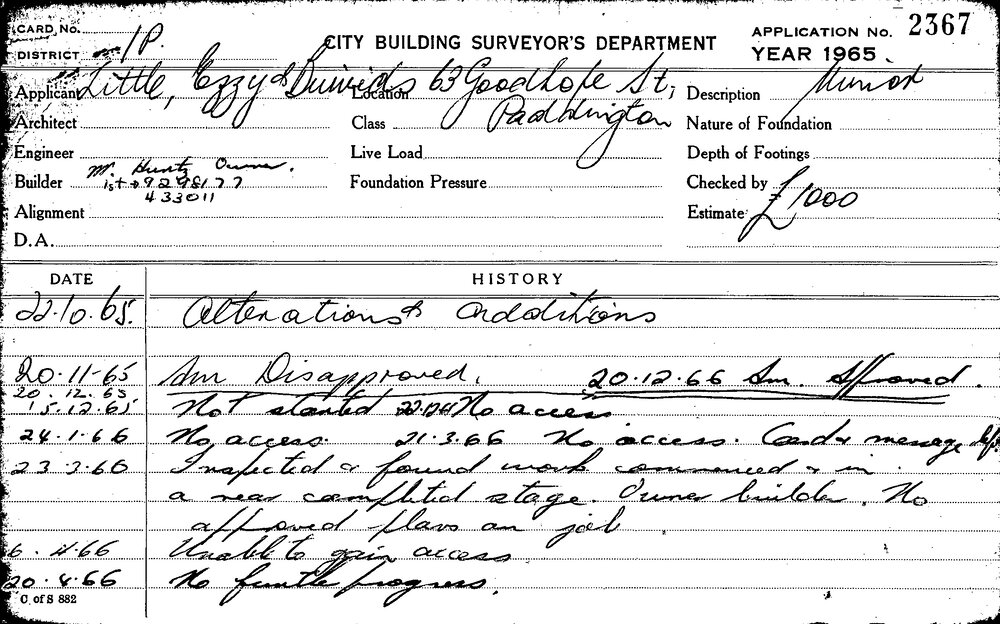 CARD No.
DISTRICT 1P.
CITY BUILDING SURVEYOR'S DEPARTMENT
APPLICATION No. 2367
YEAR 1965
Applicant Little, Ezzy &
Location 63 Goodhope St,
Paddington
Description Minor
Architect
Class
Nature of Foundation
Engineer
Live Load
Depth of Footings
M. Huntz Owner.
Builder 1st → 9298177
433011
Foundation Pressure
Checked by
Alignment
Estimate £1000
D.A.
DATE HISTORY
22.10.65. Alterations & additions
20.11.65 Am Disapproved. 20.12.66 Am. Approved.
20.12.65
15.12.65 Not started No access
24.1.66 No access. 21.3.66 No access. Card & message left.
23.3.66 Inspected & found work commenced & in
a near completed stage. Owner builder. No
approved plans on job
6.4.66 Unable to gain access
20.4.66 No further progress.
C of S 882